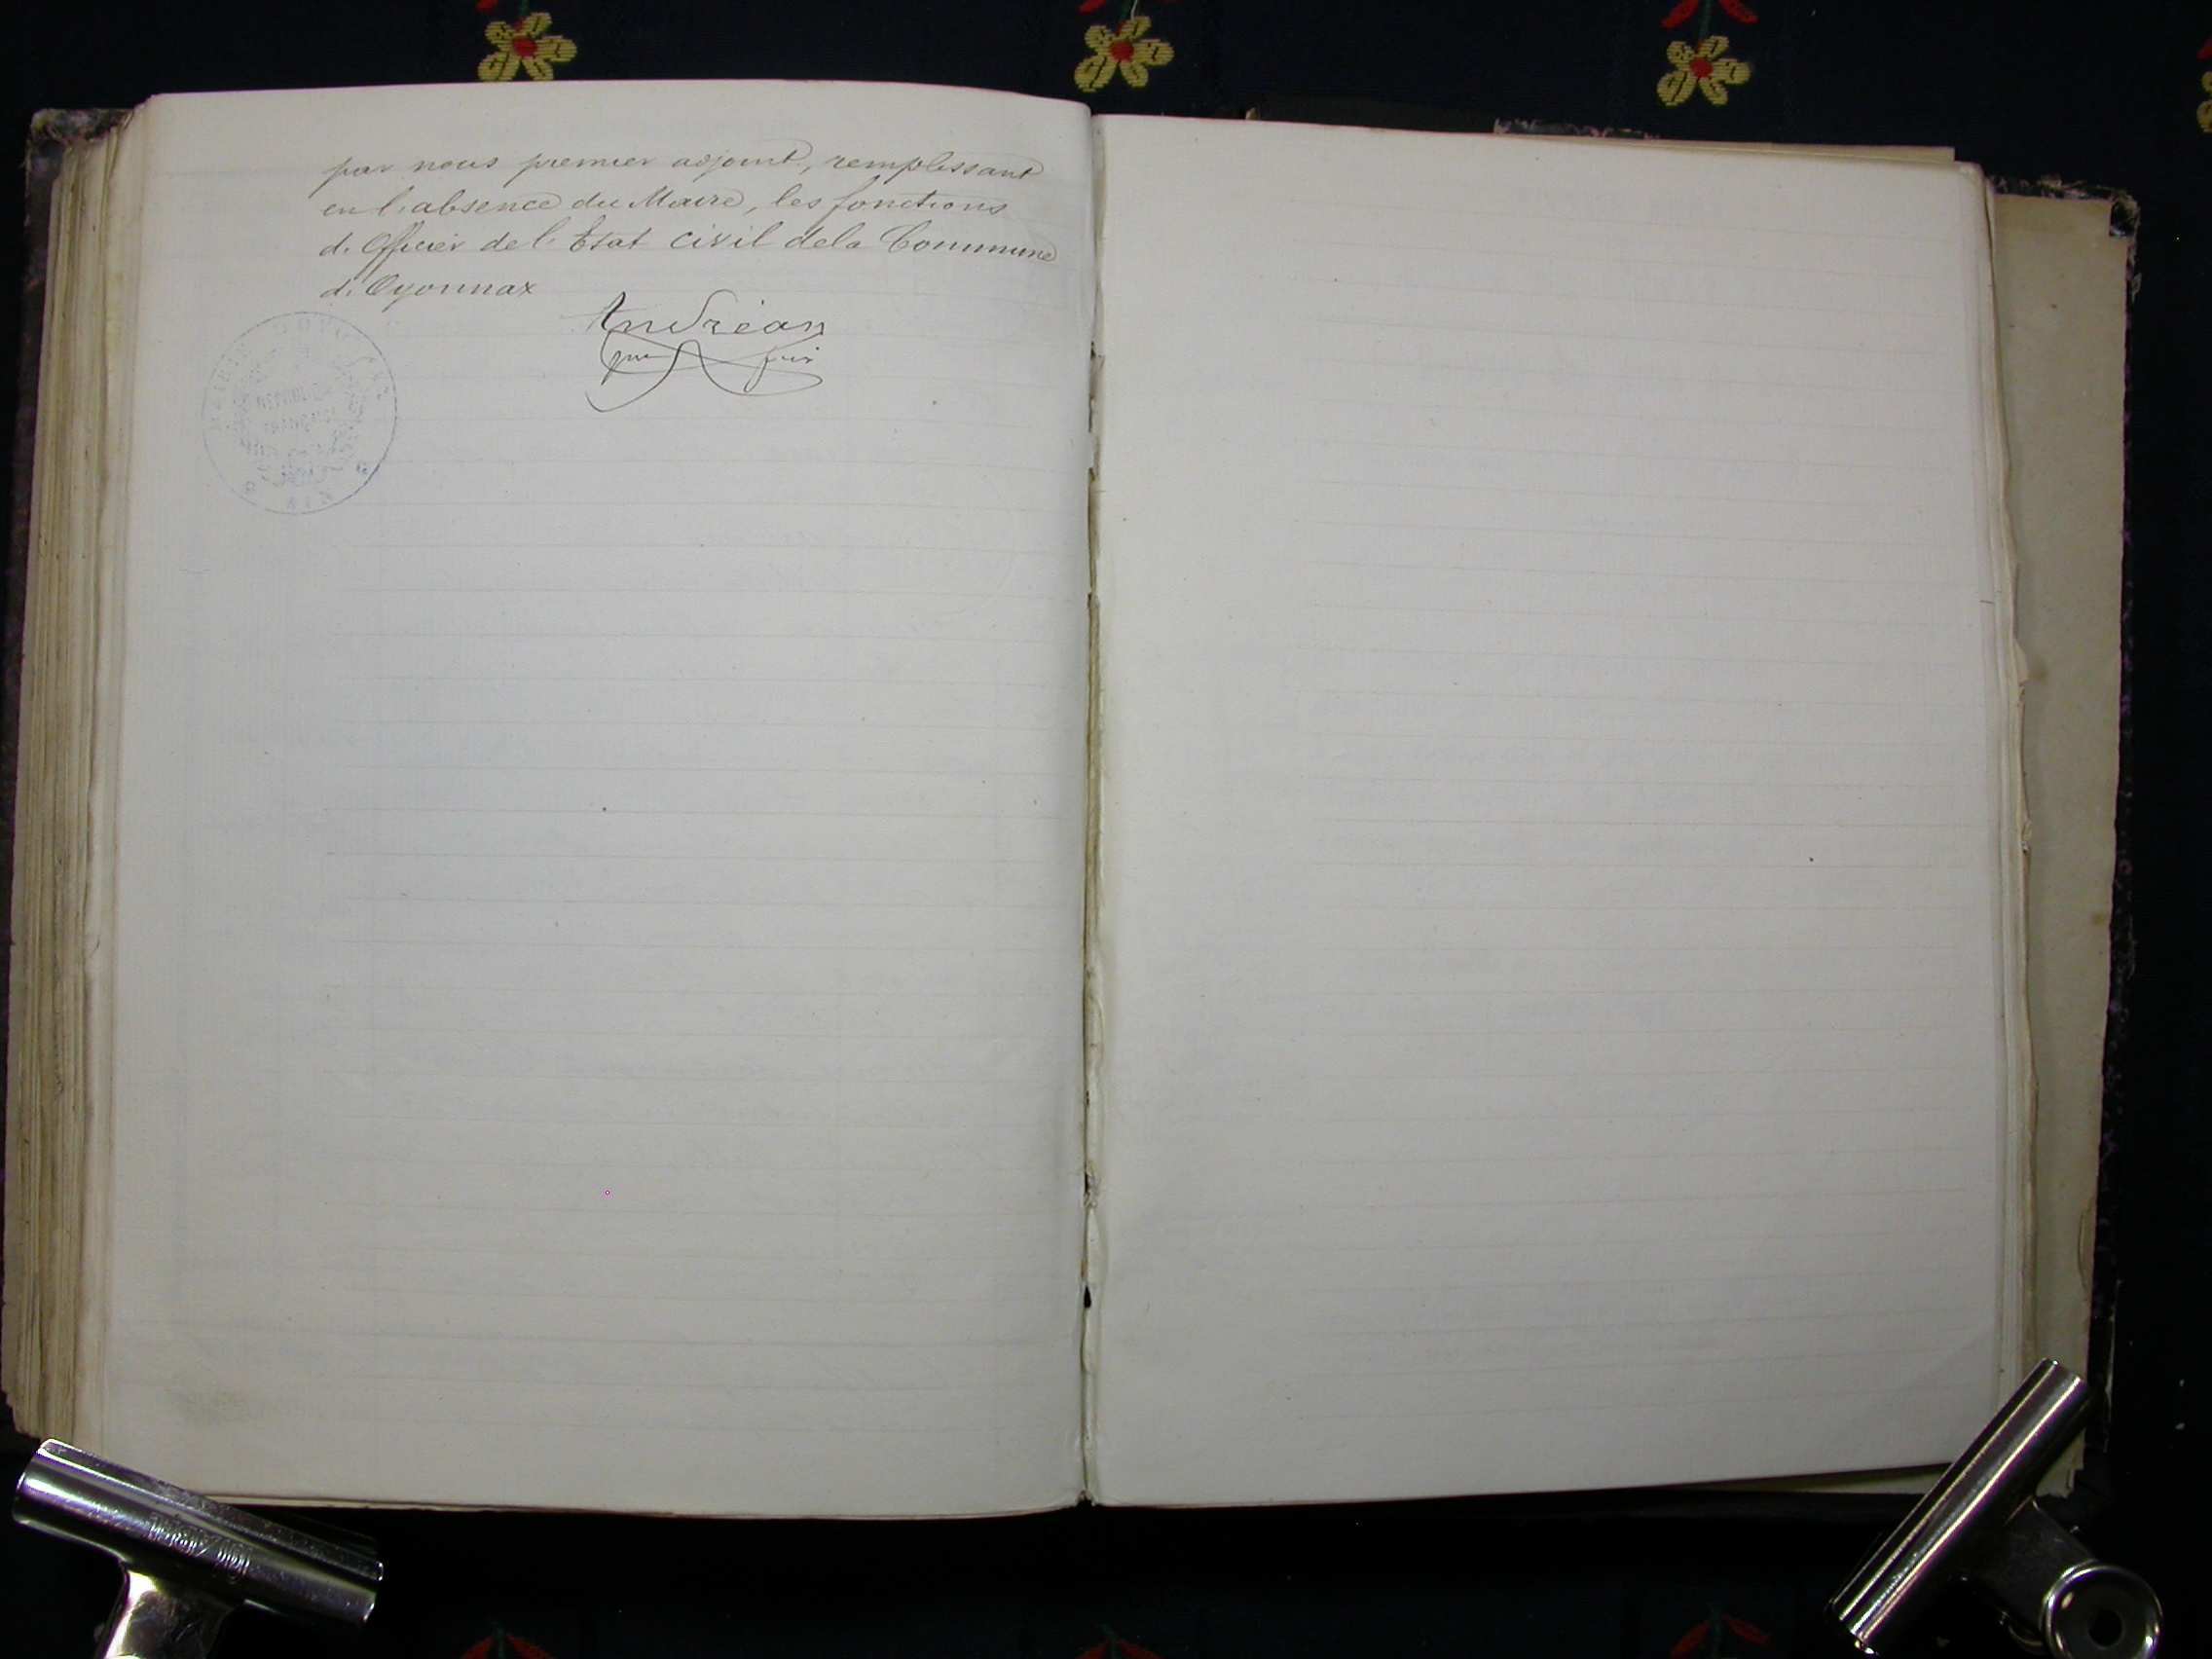 par nous premier adjoint, remplissant
en l'absence du Maire, les fonctions
d'Officier de l'Etat civil dela Commune
d'Oyonnax
Andréan
MAIRIE D'OYONNAX
REPUBLIQUE
FRANÇAISE
AIN